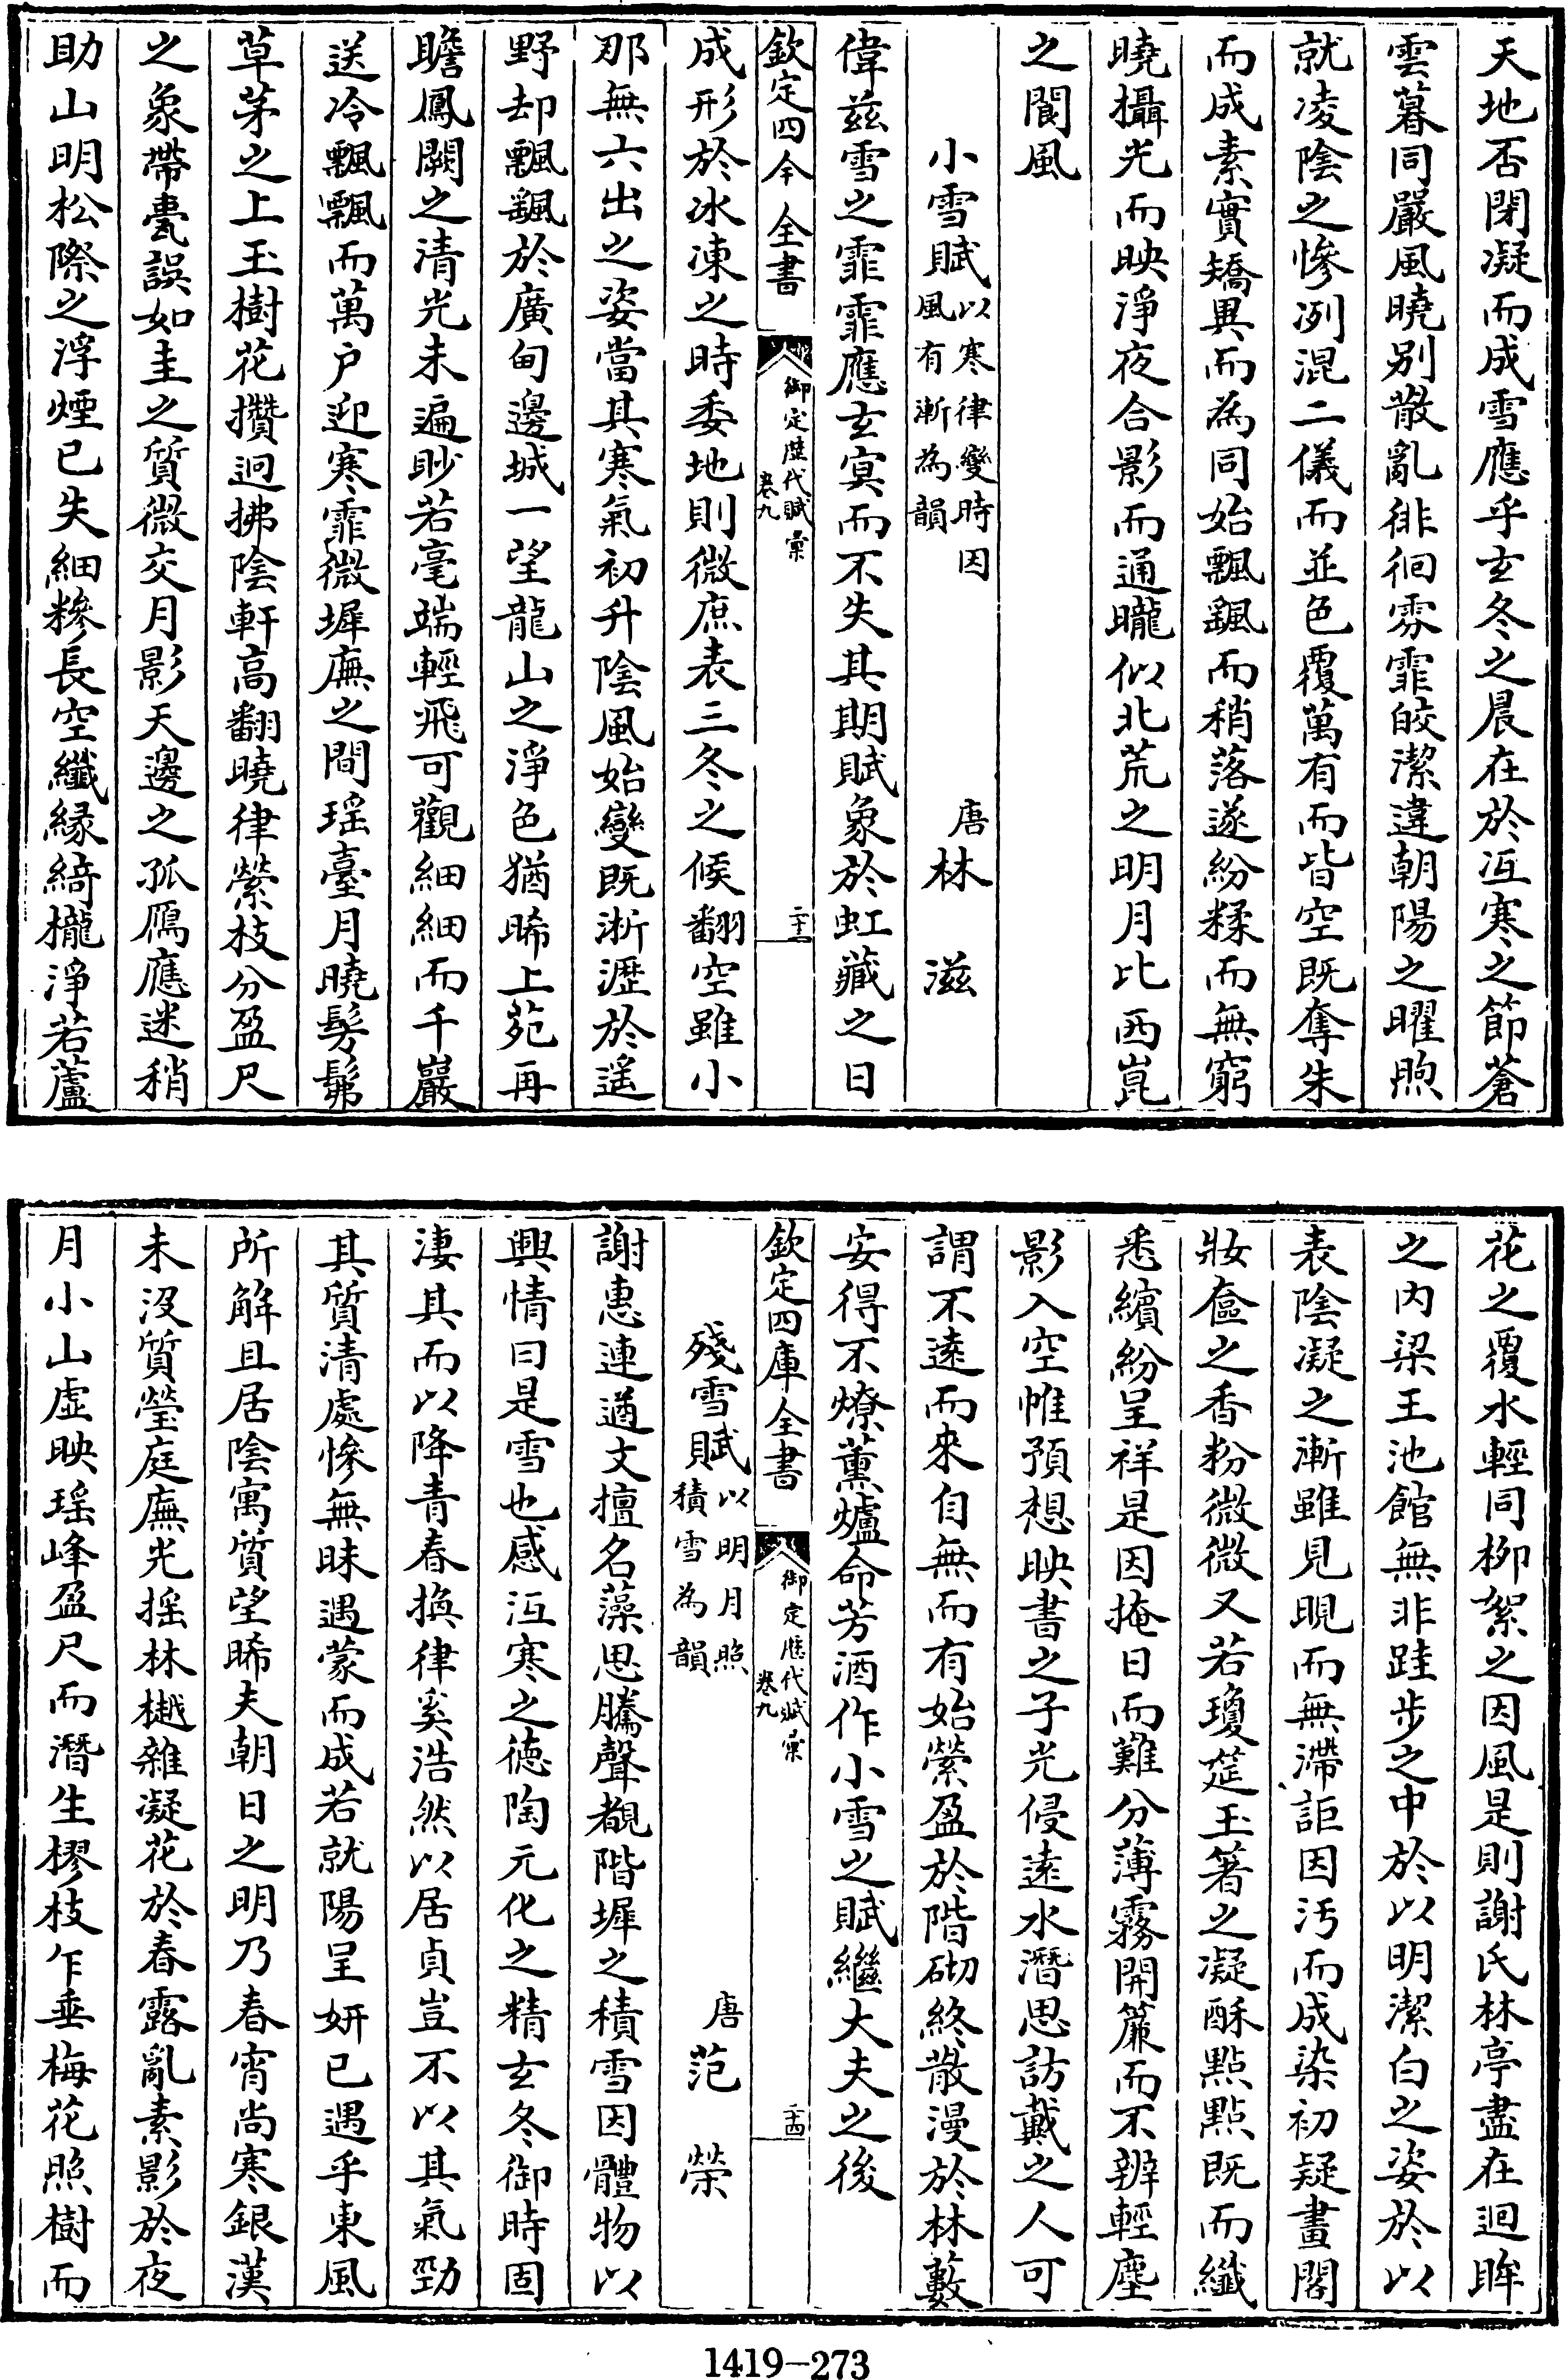 天地否閉凝而成雪應乎玄冬之晨在於沍寒之節蒼
雲暮同嚴風曉別散亂徘徊雰霏皎潔違朝陽之曜煦
就凌陰之慘冽混二儀而並色覆萬有而皆空既奪朱
而成素實矯異而為同始飄颻而稍落遂紛糅而無窮
曉攝光而映淨夜合影而通曨似北荒之明月比西崑
之閬風
小雪賦以寒律變時因風有漸為韻 唐林滋
偉兹雪之霏霏應玄冥而不失其期賦象於虹藏之日
欽定四庫全書 御定歷代賦彙 卷九 二十三
成形於冰凍之時委地則微庶表三冬之候翻空雖小
那無六出之姿當其寒氣初升陰風始變既淅瀝於遥
野却飄颻於廣甸邊城一望龍山之淨色猶晞上苑再
瞻鳳闕之清光未遍眇若毫端輕飛可觀細細而千巖
送冷飄飄而萬户迎寒霏微墀廡之間瑶臺月曉髣髴
草茅之上玉樹花攢迥拂陰軒高翻曉律縈枝分盈尺
之象帶甍誤如圭之質微交月影天邊之孤鴈應迷稍
助山明松際之浮煙已失細糝長空纖緣綺櫳淨若蘆
花之覆水輕同栁絮之因風是則謝氏林亭盡在迴眸
之内梁王池館無非跬步之中於以明潔白之姿於以
表陰凝之漸雖見晛而無滯詎因汚而成染初疑畫閣
妝奩之香粉微微又若瓊筵玉箸之凝酥點點既而纖
悉繽紛呈祥是因掩日而難分薄霧開簾而不辨輕塵
影入空帷預想映書之子光侵遠水潛思訪戴之人可
謂不遠而來自無而有始縈盈於階砌終散漫於林藪
安得不燎薰爐命芳酒作小雪之賦繼大夫之後
欽定四庫全書 御定歷代賦彙 卷九 二十四
殘雪賦以明月照積雪為韻 唐范榮
謝惠連遒文擅名藻思騰聲覩階墀之積雪因體物以
興情曰是雪也感沍寒之德陶元化之精玄冬御時固
淒其而以降青春換律奚浩然以居貞豈不以其氣勁
其質清處慘無昧遇蒙而成若就陽呈妍已遇乎東風
所解且居陰寓質望晞夫朝日之明乃春宵尚寒銀漢
未没質瑩庭廡光摇林樾雜凝花於春露亂素影於夜
月小山虚映瑶峰盈尺而潛生樛枝乍垂梅花照樹而
1419-273